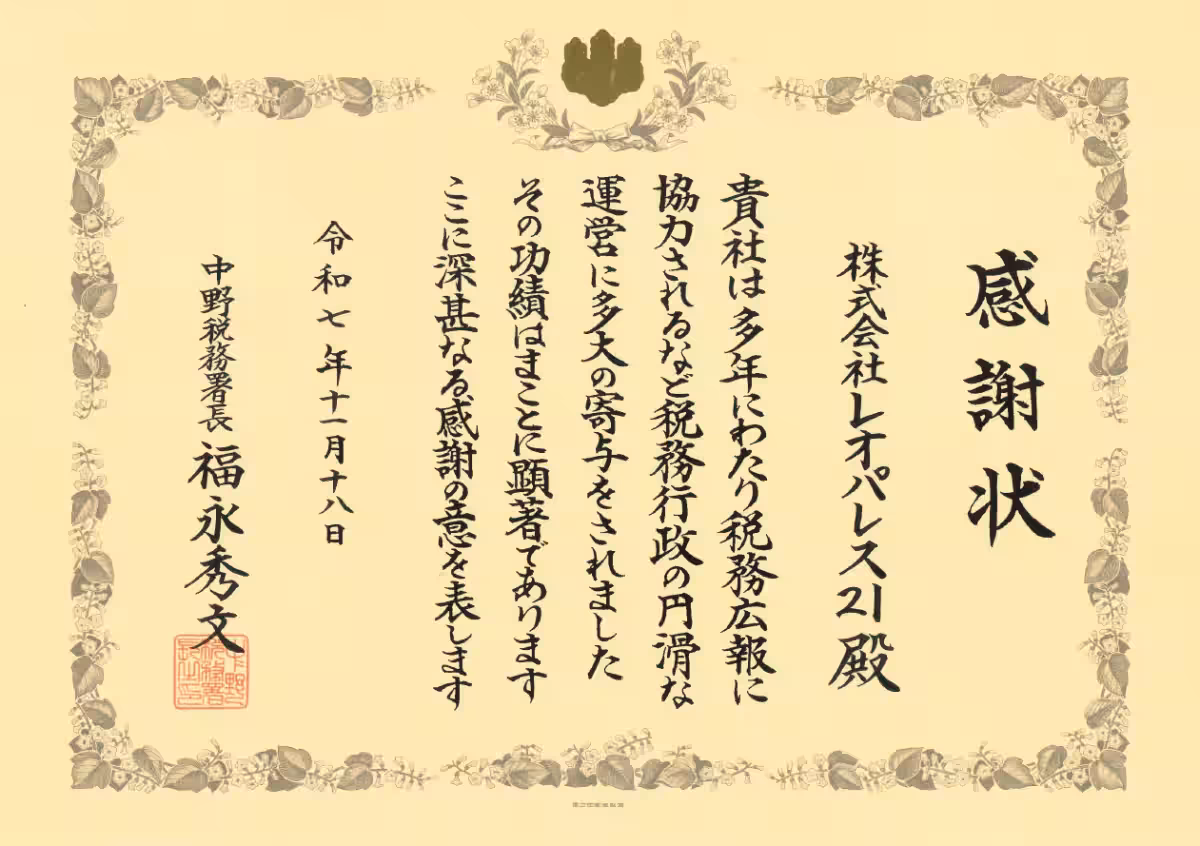 感謝状
株式会社レオパレス21殿
貴社は多年にわたり税務広報に
協力されるなど税務行政の円滑な
運営に多大の寄与をされました
その功績はまことに顕著であります
ここに深甚なる感謝の意を表します
令和七年十一月十八日
中野税務署長 福永秀文
中野税務署長之印